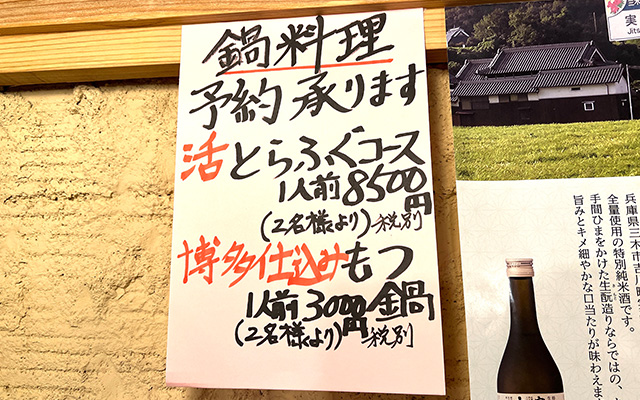 鍋料理
予約承ります
活とらふぐコース
1人前8500円
(2名様より)税別
博多仕込みもつ鍋
1人前3000円
(2名様より)税別
実
Jits
兵庫県三木市吉川町
全量使用の特別純米酒です。
手間ひまをかけた生酛造りならではの、
旨みとキメ細やかな口当たりが味わえま